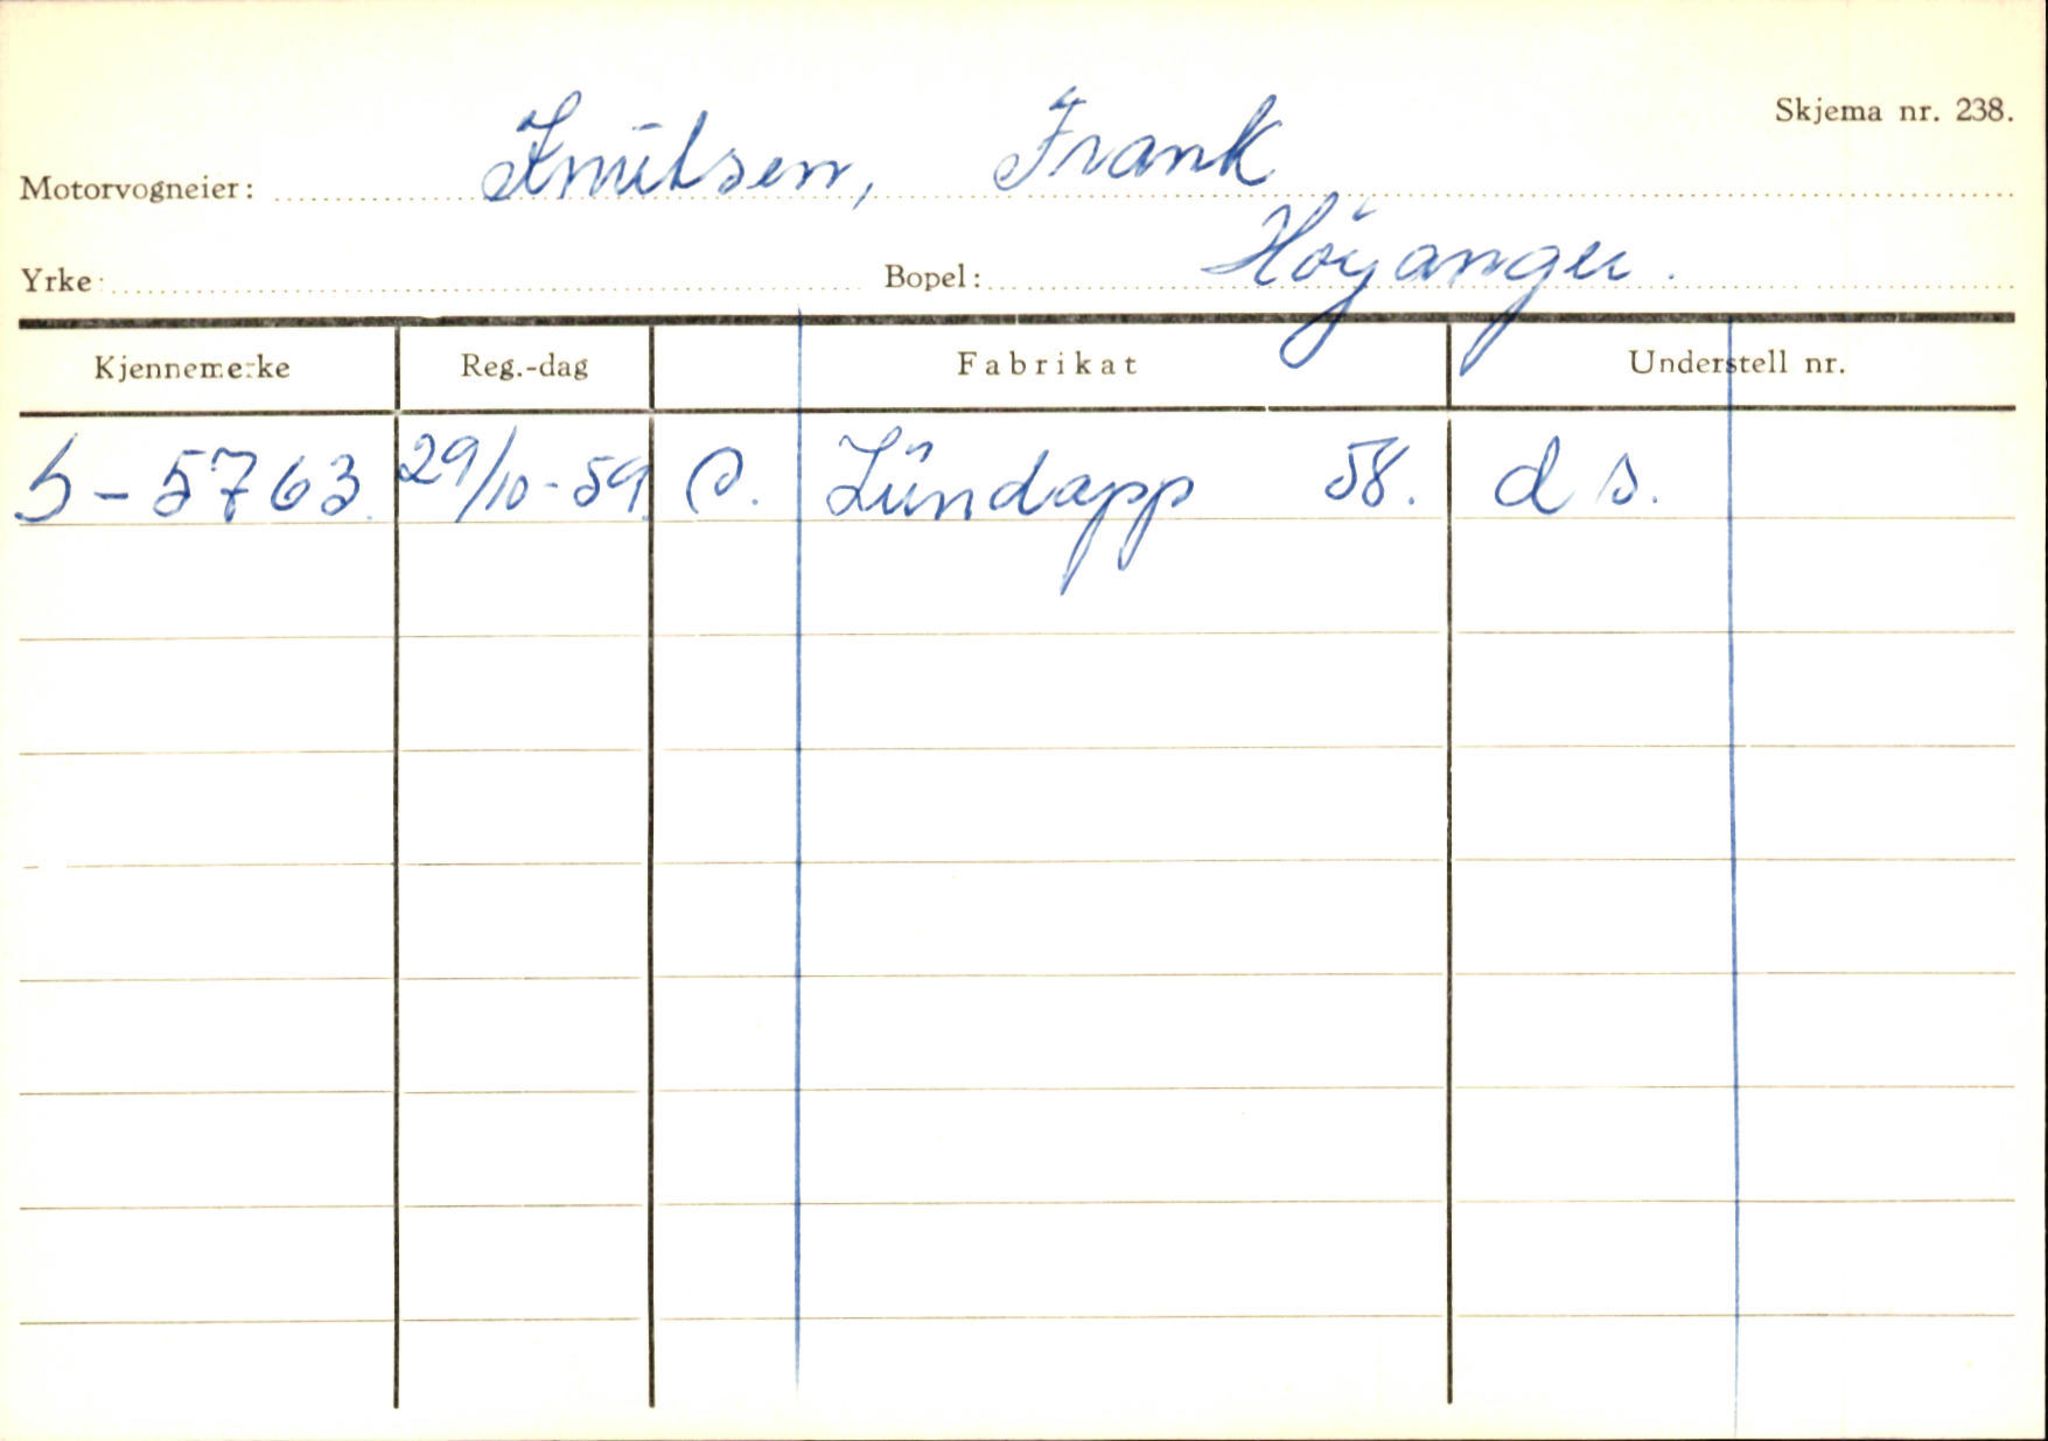 Skjema nr. 238.
Motorvogneier: Knutsen, Frank
Yrke: Bopel: Höyanger.
Kjennemerke Reg.-dag Fabrikat Understell nr.
S-5763. 29/10-59. Zündapp 58. d s.